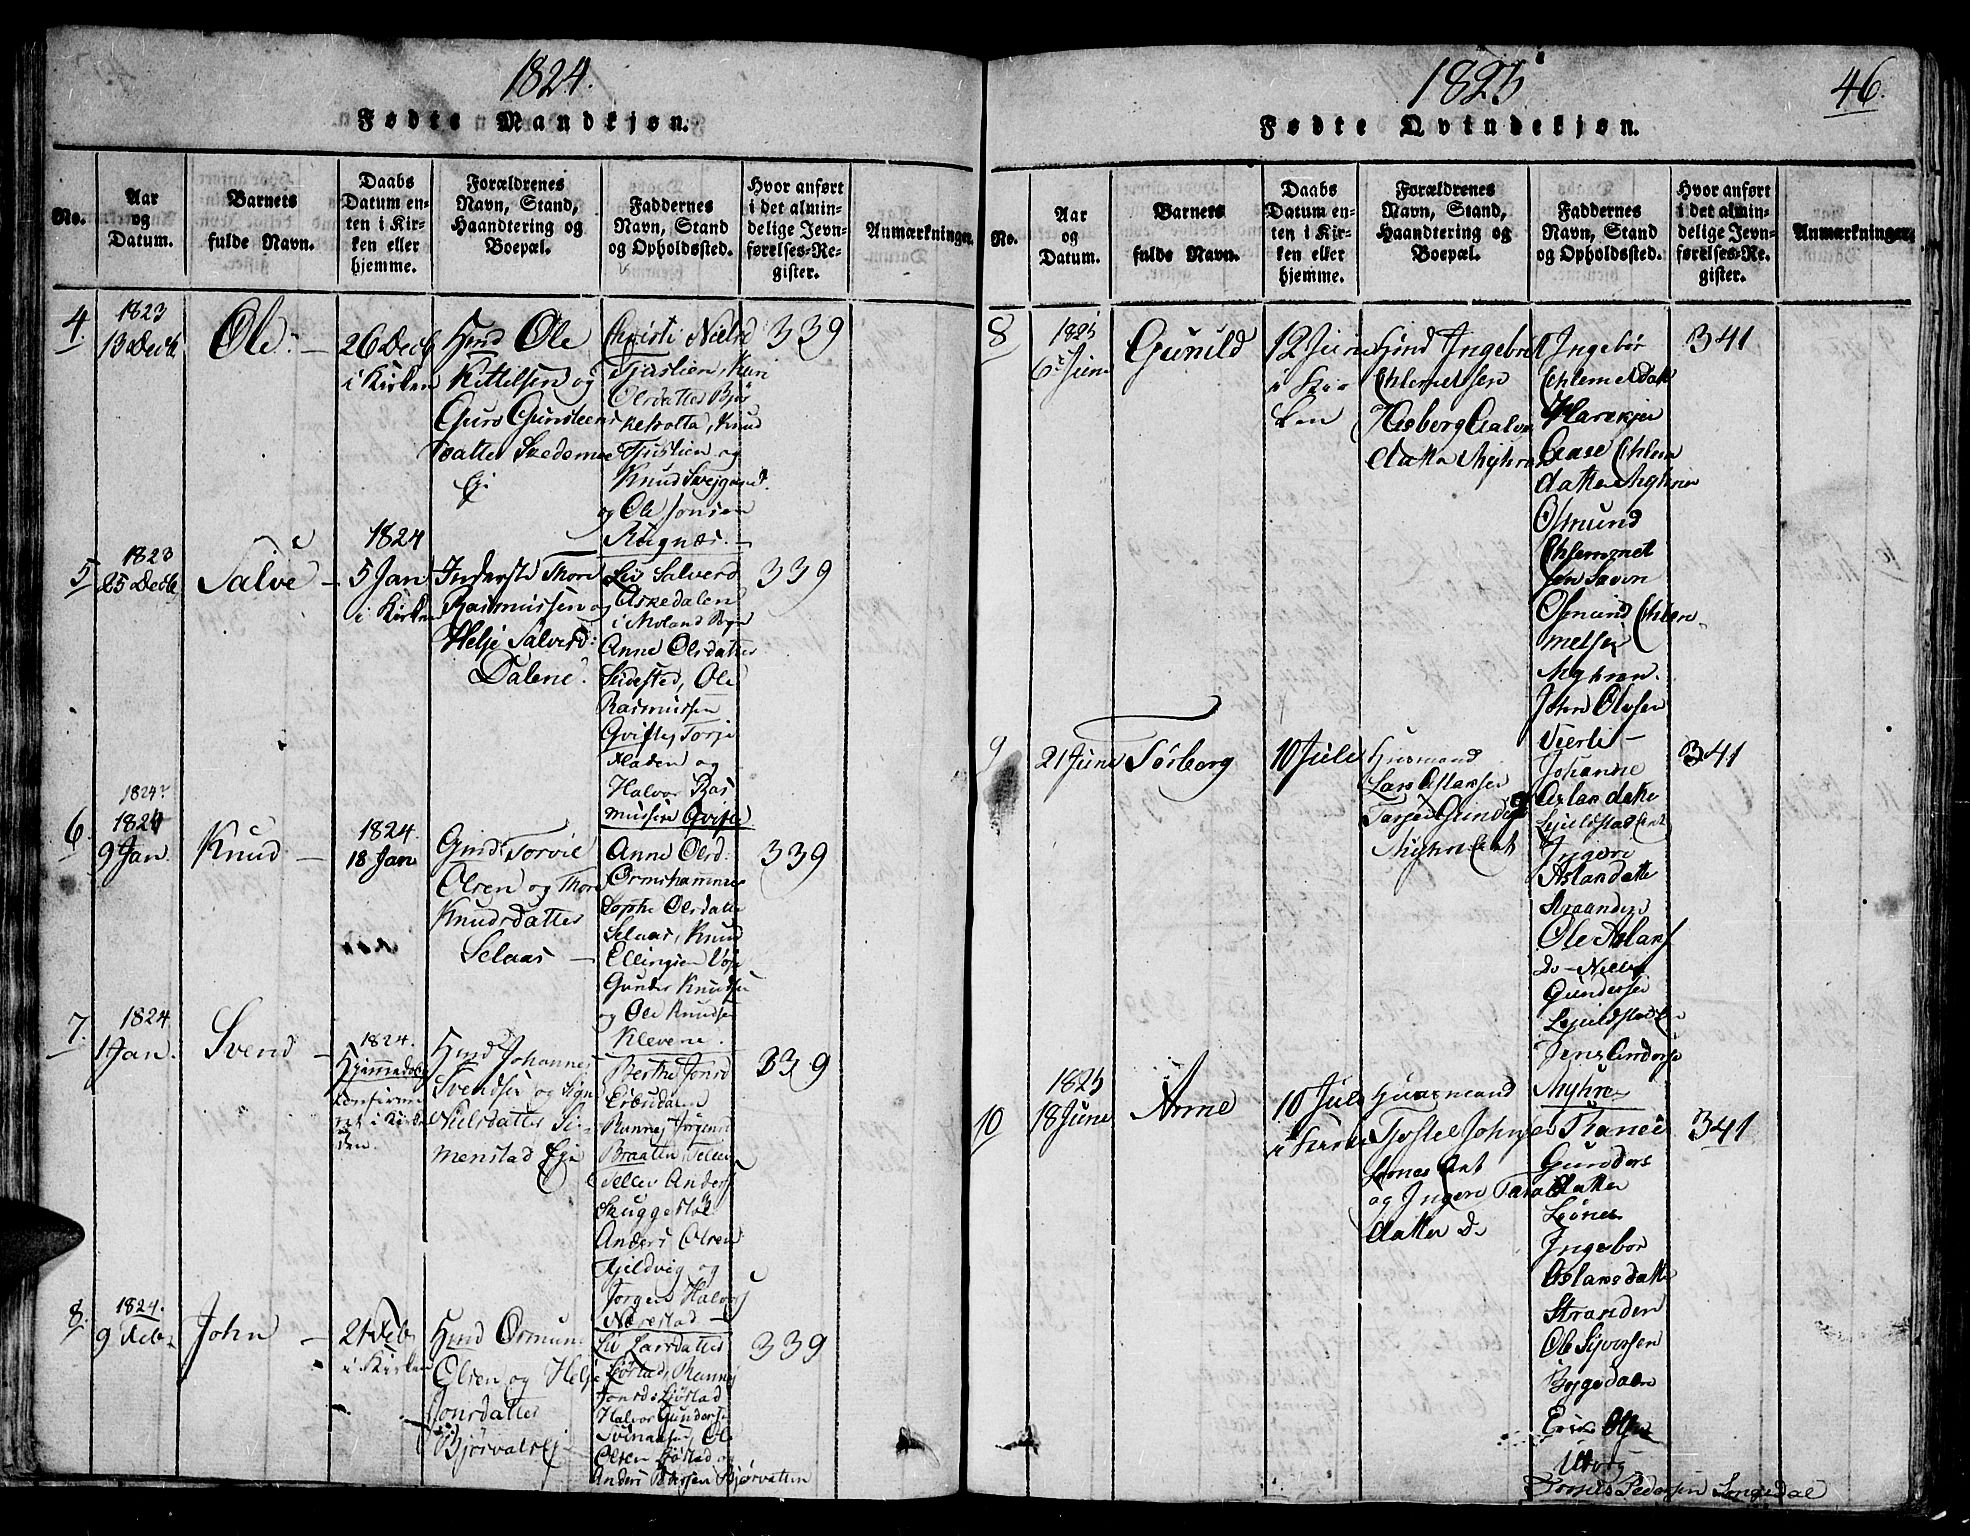 1824.
Fødte Mandkjøn.
No.
Aar
og
Datum.
Barnets
fulde Navn.
Daabs
Datum en-
ten i Kir-
ken eller
hjemme.
Forældrenes
Navn, Stand,
Haandtering og
Boepæl.
Faddernes
Navn, Stand
og Opholdssted.
Hvor anført
i det almin-
delige Jevn-
førelses-Re-
gister.
Anmærkninger.
4
1823
13 Decb
Ole
26 Decb
i Kirken
Hmd Ole
Kittelsen og
Guro Gunsteens
datter
Christi Niels
Tjøstien, Kari
Olsdatter Bjør
ketvotta, Knud
Tjøstien og
Knud
og Ole Jonsen
Rugnæs.
339
5
1823
25 Decb
Salve
1824
5 Jan
i Kirken
Inderste Thore
Rasmussen og
Helje Salvesd:
Dalene.
Liv Salvesd
Askedalen
i Moland Sogn
Anne Olsdatter
Ole
Rasmussen
Qvifte, Torje
Hladen og
Halvor Ras
mussen Qvifte
339
6.
1824
1824
9 Jan.
Knud
1824.
18 Jan
Gmd Torvil
Olsen og Thore
Knudsdatter
Selaas
Anne Olsd.
Ormshammer
Sophe Olsdatte
Selaas, Knud
Ellingsen
Gunder Knudsen
og Ole Knudsen
Klevene.
339
7.
1824
1 Jan.
Svend
1824.
Hjemmedøbt
confirme
ret i Kirken
Hmd Johannes
Svendsen og Sign
Nielsdatter Si-
menstad Eje
Berthe Jonsd
Eibsdalen
Rannej Jørgens
Braaten, Tellev
Tellev Anders
Skuggestøl
Anders Olsen
Kjeldvig og
Jørgen Halvors
Nærestad
339
8.
1824.
9 Feb
John
21 Feb
i Kirken
Hmd Osmun
Olsen og Helje
Jonsdatter
Bjørvatsej
Liv Larsdatter
Løstad, Rannej
Jonsd Løstad
Halvor Gunders
Svenaasen, Ole
Olsen Løstad og
Anders Jonssen Bjørvatten
339
1825
46.
Fødte Qvindekjøn.
No.
Aar
og
Datum.
Barnets
fulde Navn.
Daabs
Datum en-
ten i Kir-
ken eller
hjemme.
Forældrenes
Navn, Stand,
Haandtering og
Boepæl.
Faddernes
Navn, Stand
og Opholdssted.
Hvor anført
i det almin-
delige Jevn-
førelses-Re-
gister.
Anmærkninger.
8
1825
6 Juni
Gunild
12 Juni
i Kir
ken
Gmd Ingebret
Chlemetsen
Aasberg
datter Myhren
Ingebør
Chlemetdat
Harekjer
Aase Chlem
datter Myhren
Osmund
Chlemmet
sen Saven
Osmund Chlem
metsen
Myhren.
John Olsen
Vierli
341
9
21 June
Tørborg
10 Jule
Huusmand
Lars Aslaksen
Myhren Ent
Johanne
Aslansdatte
Ingere
Aslandatte
Straanden
Ole Aslans
Do Niels
Gundersen
Jens Anders
Myhre
341
10
1825
18 June
Anne
10 Jule
i Kirke
Huusmand
Tjøstel Johns
Lønes Ent
og Ingere
datter Do
Ranei
Gunders
datter
Lønes
Ingebor
Aslansdatte
Stranden
Ole Syversen
Bøjgedalen
Erik Olsen
Utvog
Pedersen Songedal
341